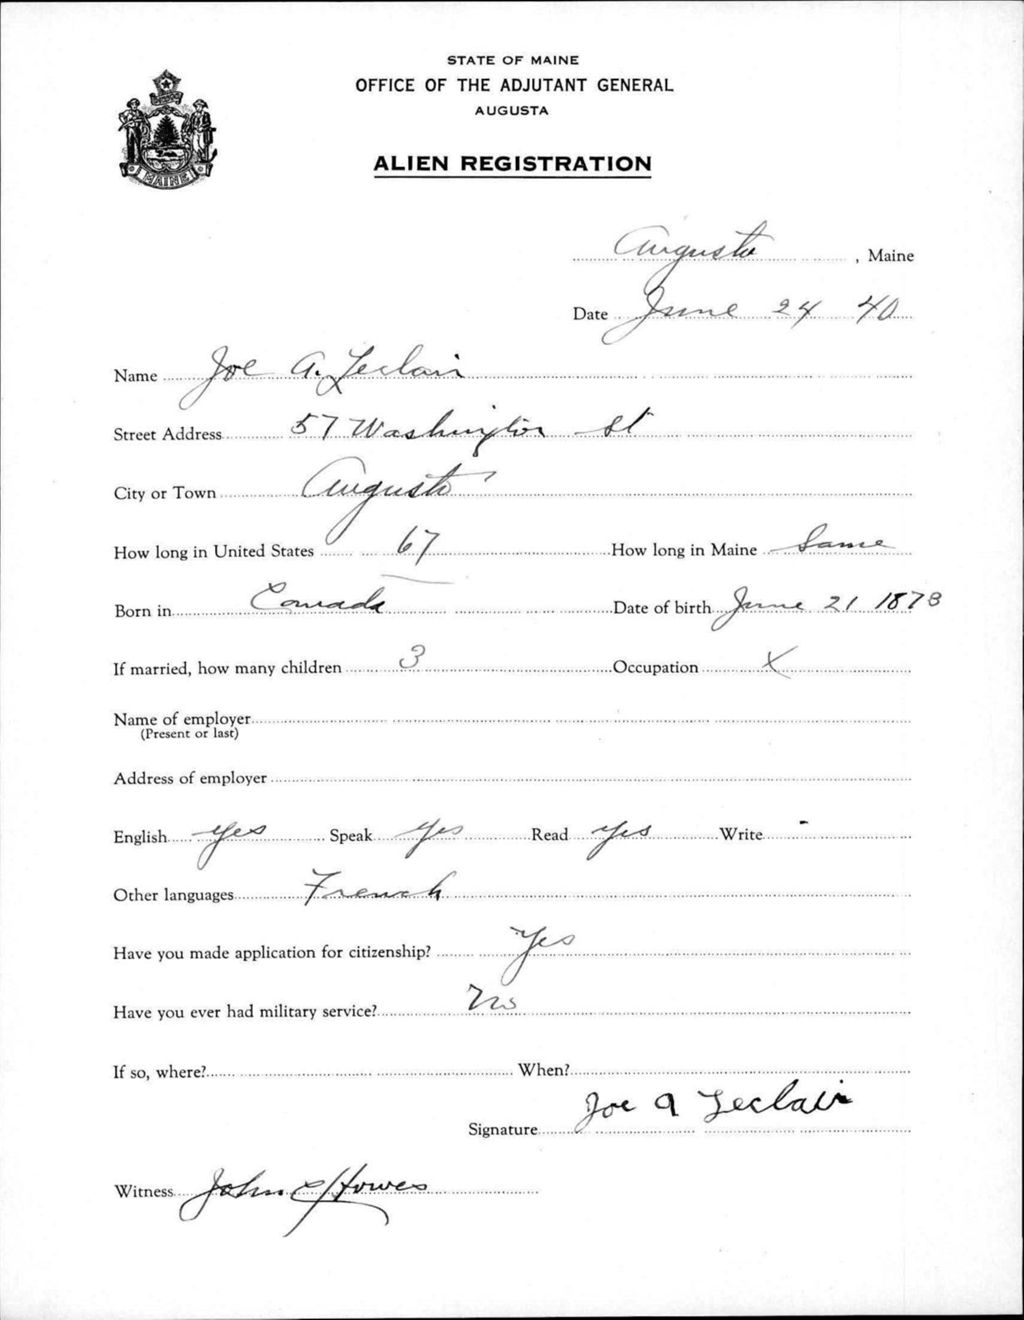 STATE OF MAINE
OFFICE OF THE ADJUTANT GENERAL
AUGUSTA
ALIEN REGISTRATION
MAINE
Augusta, Maine
Date June 24 40
Name Joe A. Leclair
Street Address 57 Washington St
City or Town Augusta
How long in United States 67 How long in Maine Same
Born in Canada Date of birth June 21 1873
If married, how many children 3 Occupation X
Name of employer
(Present or last)
Address of employer
English Yes Speak Yes Read Yes Write -
Other languages French
Have you made application for citizenship? Yes
Have you ever had military service? No
If so, where? When?
Signature Joe A Leclair
Witness John C Howes